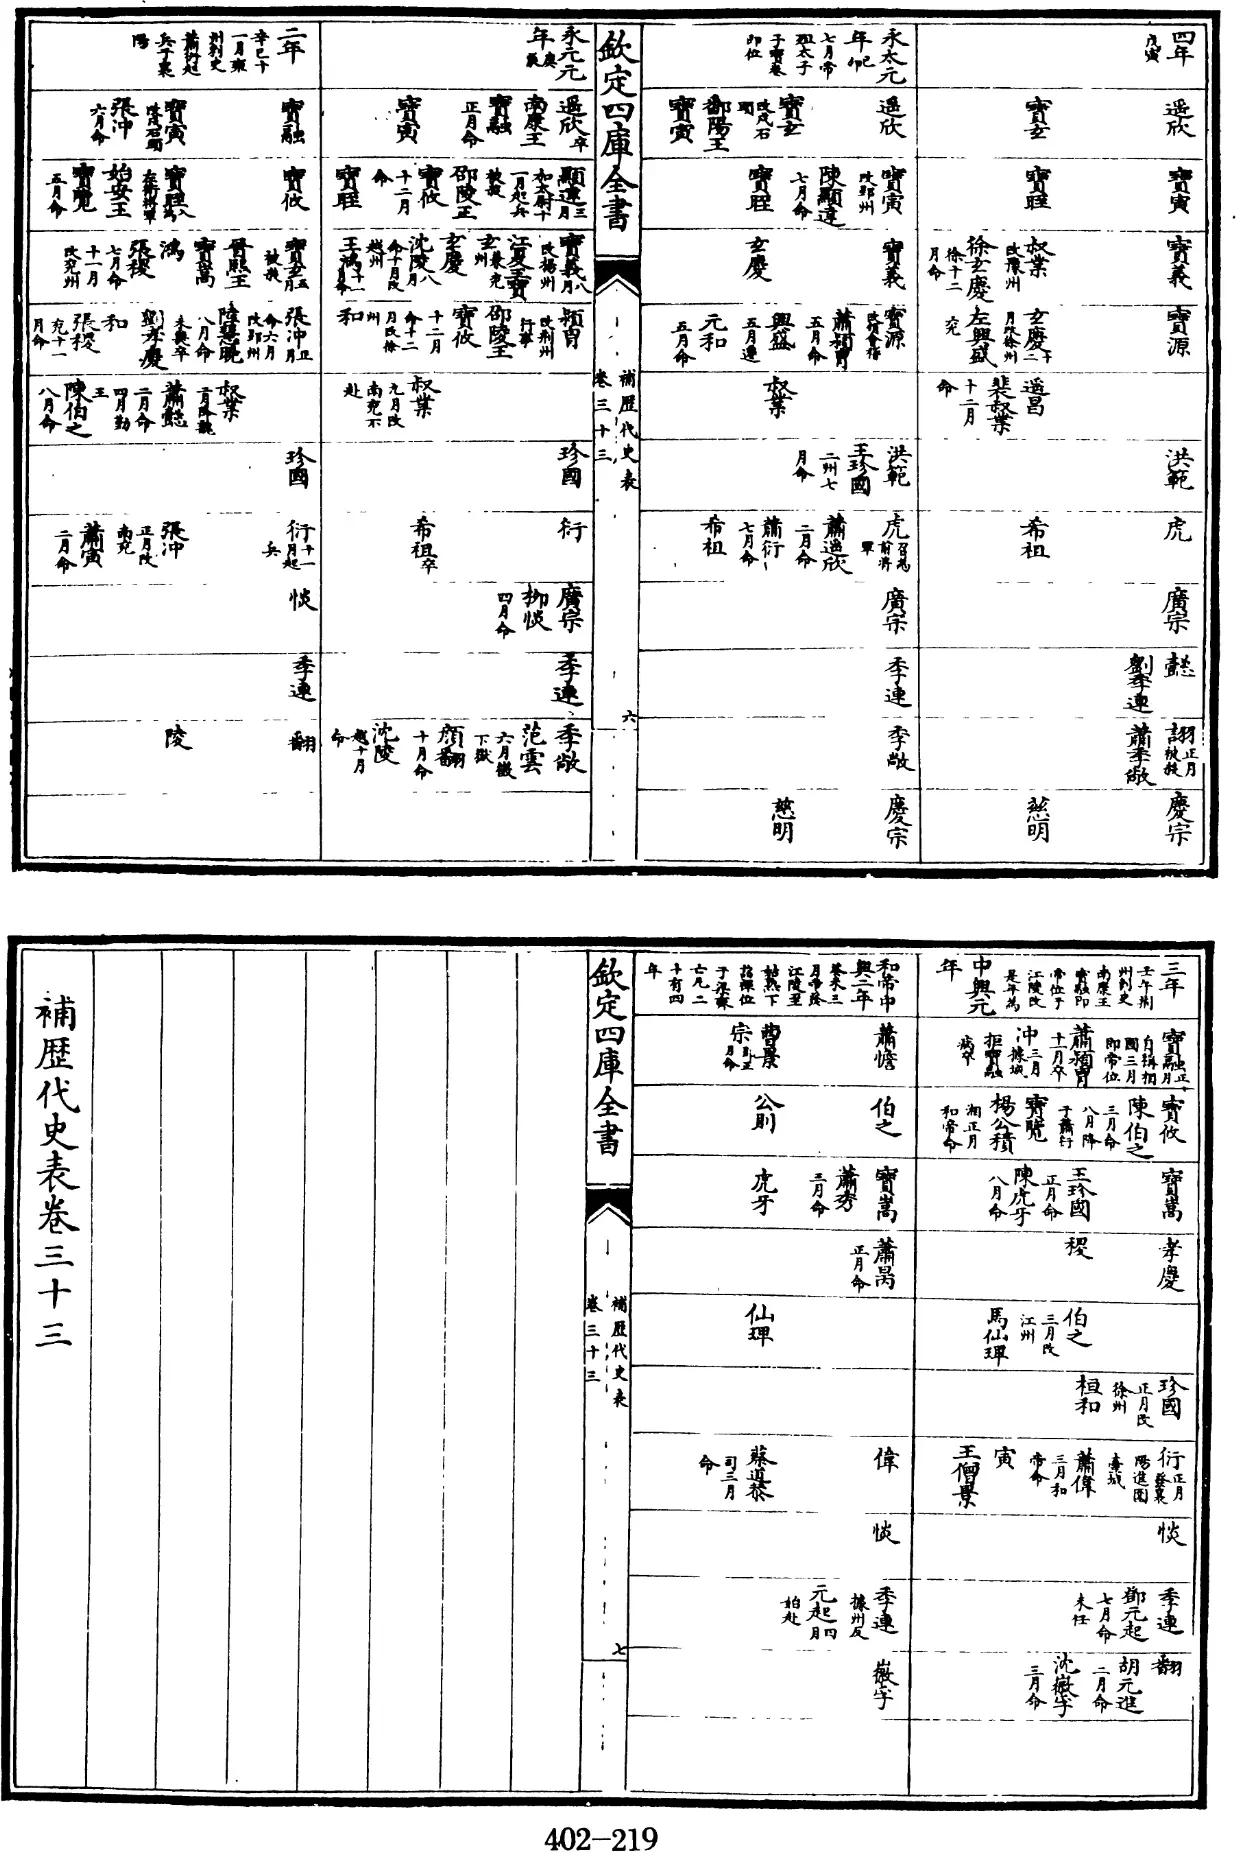 四年
戊寅
遥欣
寶玄
寶寅
寶晊
寶義
叔業
改豫州
徐玄慶
徐十二
月命
寶源
玄慶
左興盛
遥昌
裴叔業
十二月
命
洪範
虎
希祖
廣宗
懿
劉季連
翊正月
被殺
蕭季敞
慶宗
慈明
永太元
年己卯
七月帝
殂太子
寶卷
即位
遥欣
寶玄
改戍石
頭
鄱陽王
寶寅
寶寅
改郢州
陳顯達
七月命
寶晊
寶義
玄慶
寶源
蕭穎胄
五月命
興盛
五月還
元和
五月命
叔業
洪範
王珍國
二州七
月命
虎召為
前將
軍
蕭遥欣
二月命
蕭衍
七月命
希祖
廣宗
季連
季敞
慶宗
慈明
欽定四庫全書
補歴代史表
卷三十三
六
永元元
年
遥欣卒
南康王
寶融
正月命
寶寅
顯達三月
加太尉十
一月起兵
被殺
邵陵王
寶攸
十二月
命
寶晊
寶義八月
改楊州
江夏王寶
玄兼兖
州
玄慶
沈陵八月
命十月改
越州
王鴻十一
月命
穎胄
改荆州
行事
邵陵王
寶攸
十二月
命十二
月改徐
州
和
叔業
九月改
南兖不
赴
珍國
衍
希祖卒
廣宗
柳惔
四月命
季連
季敞
范雲
六月徵
下獄
顔翻
十月命
沈陵
越十月
命
二年
辛巳十
一月雍
州刺史
蕭衍起
兵于襄
陽
寶融
寶寅
改戍石頭
張沖
六月命
寶攸
寶晊八
月為
左衛將軍
始安王
寶覽
五月命
寶玄五月
被殺
晉熙王
寶嵩
鴻
張稷
七月命
十一月
改兖州
張沖正月
命六月
改郢州
陸慧曉
八月命
未幾卒
劉孝慶
和
張稷
兖十一
月命
叔業
二月降魏
蕭懿
二月命
四月勤
王
陳伯之
八月命
珍國
衍十一
月起
兵
張沖
正月改
南兖
蕭寅
二月命
惔
季連
翻
陵
三年
壬午荆
州刺史
南康王
寶融即
帝位于
江陵改
是年為
中興元
年
寶融正月
自稱相
國三月
即帝位
蕭穎胄
十一月卒
沖三月
據城
拒寶融
病卒
寶攸
陳伯之
三月命
八月降
于蕭衍
寶覽
楊公積
湘正月
和帝命
寶嵩
王珍國
正月命
陳虎牙
八月命
孝慶
稷
伯之
三月改
江州
馬仙琕
珍國
正月改
徐州
桓和
衍正月
發襄
陽進圍
臺城
蕭偉
三月和
帝命
寅
王僧景
惔
季連
鄧元起
七月命
未任
翻
胡元進
二月命
沈徽孚
三月命
和帝中
興二年
癸未三
月帝發
江陵至
姑熟下
詔禪位
于梁齊
亡凡二
十有四
年
蕭憺
曹景
宗郢正
月命
伯之
公則
寶嵩
蕭秀
三月命
虎牙
蕭昺
正月命
仙琕
偉
蔡道恭
司三月
命
惔
季連
據州反
元起四月
始赴
徽孚
欽定四庫全書
補歴代史表
卷三十三
七
補歴代史表卷三十三
402-219